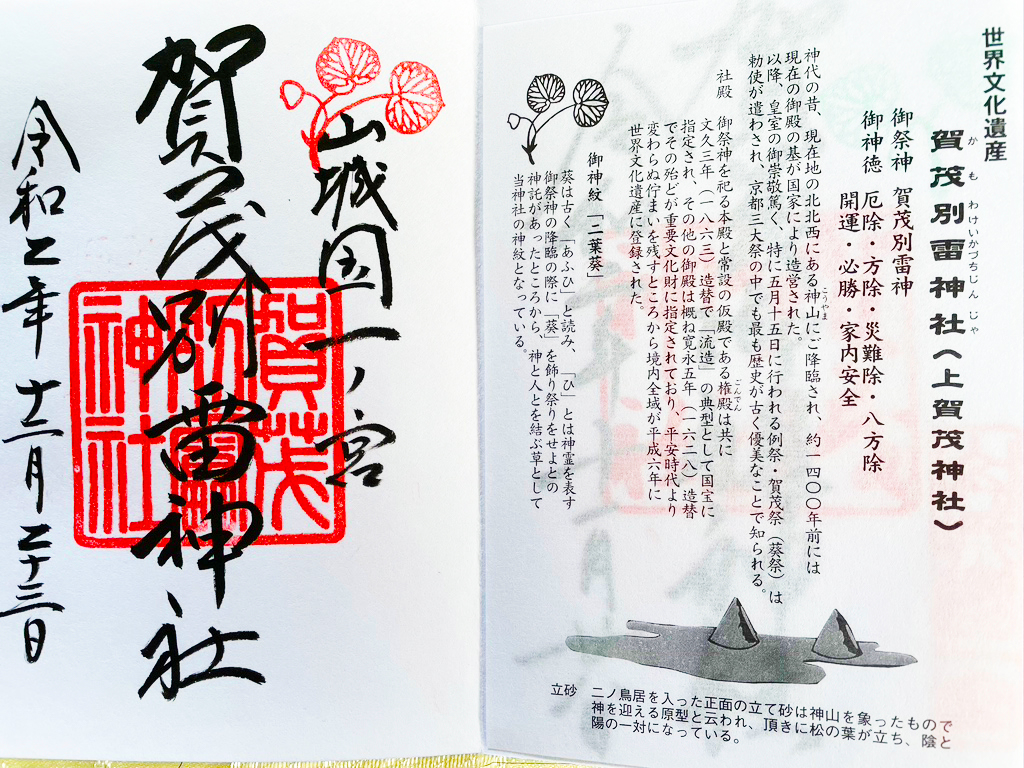 世界文化遺産
賀茂別雷神社(上賀茂神社)
かもわけいかづちじんじゃ
御祭神 賀茂別雷神
御神徳 厄除・方除・災難除・八方除
開運・必勝・家内安全
神代の昔、現在地の北北西にある神山にご降臨され、約一四〇〇年前には
こうやま
現在の御殿の基が国家により造営された。
以降、皇室の御崇敬篤く、特に五月十五日に行われる例祭・賀茂祭(葵祭)は
勅使が遣わされ、京都三大祭の中でも最も歴史が古く優美なことで知られる。
社殿 御祭神を祀る本殿と常設の仮殿である権殿は共に
ごんでん
文久三年(一八六三)造替で「流造」の典型として国宝に
指定され、その他の御殿は概ね寛永五年(一六二八)造替
でその殆どが重要文化財に指定されており、平安時代より
変わらぬ佇まいを残すところから境内全域が平成六年に
世界文化遺産に登録された。
御神紋 「二葉葵」
葵は古く「あふひ」と読み、「ひ」とは神霊を表す
御祭神の降臨の際に「葵」を飾り祭りをせよとの
神託があったところから、神と人とを結ぶ草として
当神社の神紋となっている。
立砂 二ノ鳥居を入った正面の立て砂は神山を象ったもので
神を迎える原型と云われ、頂きに松の葉が立ち、陰と
陽の一対になっている。
山城国一ノ宮
賀茂別雷神社
賀茂
別雷
神社
令和二年 十二月 二十三日